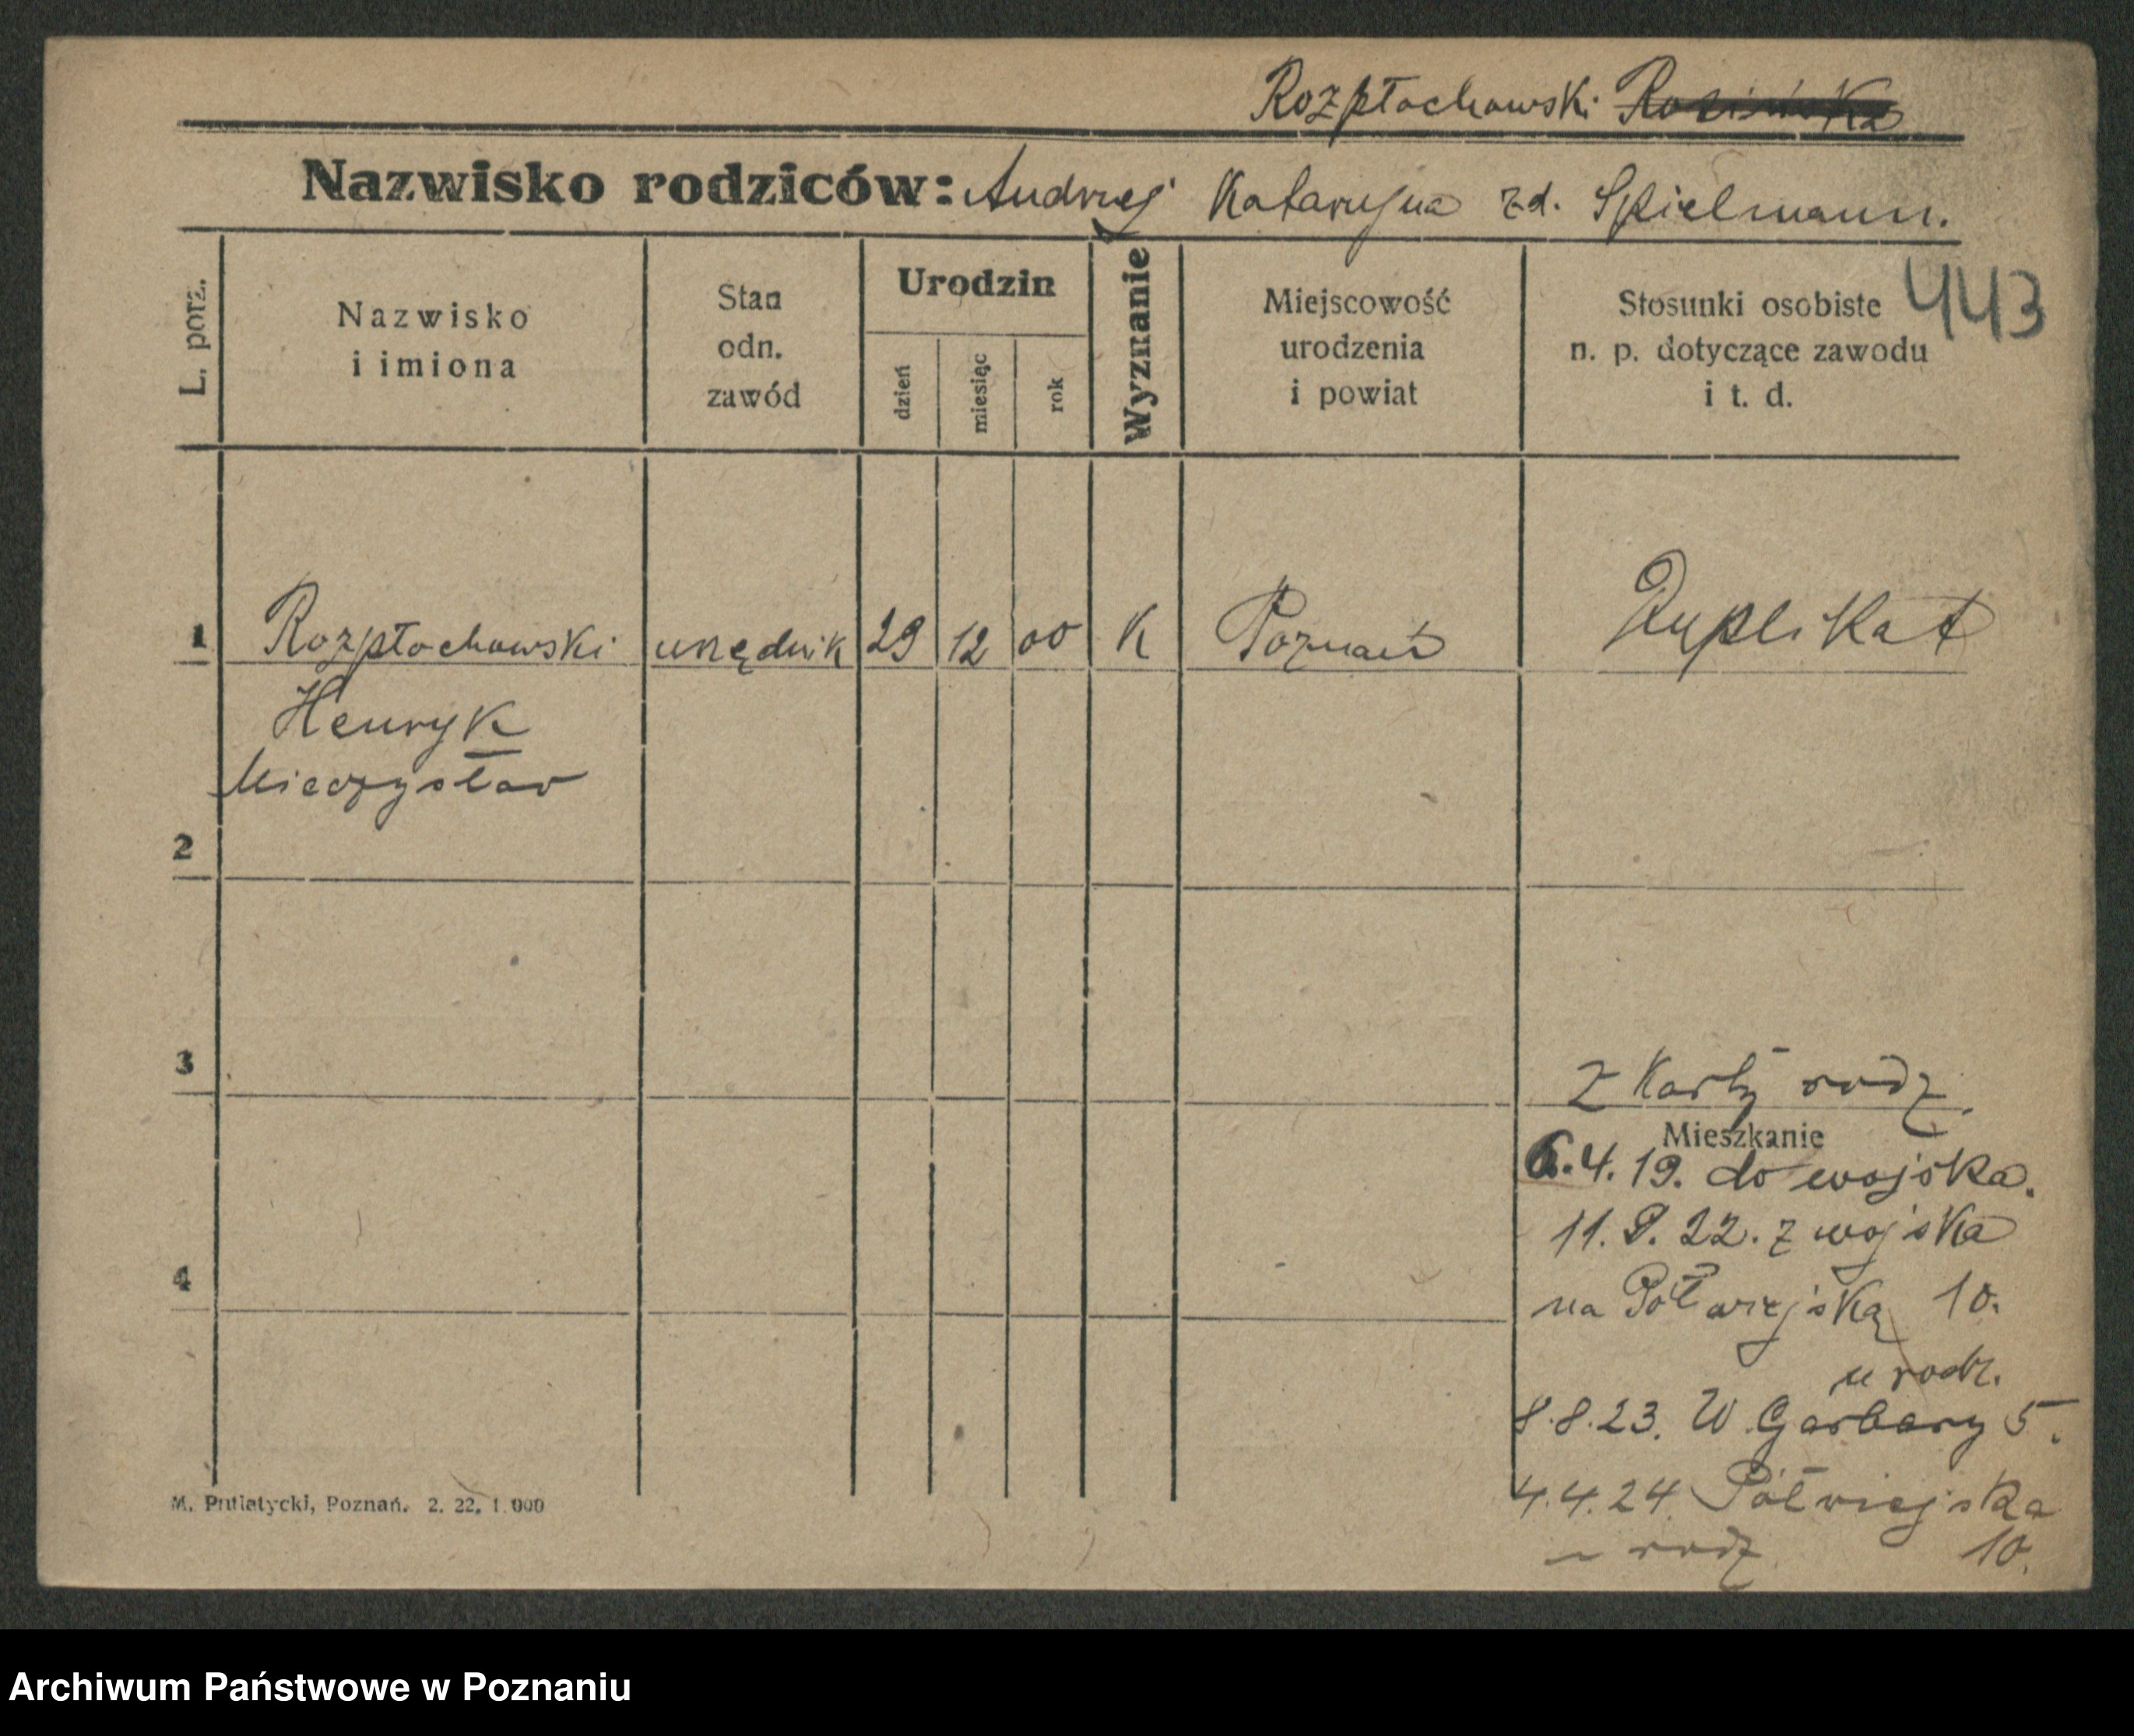 Rozpłochowski
Nazwisko rodziców: Andrzej Katarzyna zd. Spielmann.
443
L. porz.
Nazwisko
i imiona
Stan
odn.
zawód
Urodzin
dzień
miesiąc
rok
Wyznanie
Miejscowość
urodzenia
i powiat
Stosunki osobiste
n. p. dotyczące zawodu
i t. d.
1 Rozpłochowski urzędnik 29 12 00 K Poznań Duplikat
Henryk
Mieczysław
2
3
Z Karty rodz.
Mieszkanie
6.4.19. do wojska.
11.9.22. z wojska
4
na Półwiejską 10.
u rodz.
8.8.23. W Garbary 5.
4.4.24 Półwiejska
u rodz 10.
M. Putiatycki, Poznań. 2. 22. 1 000
Archiwum Państwowe w Poznaniu